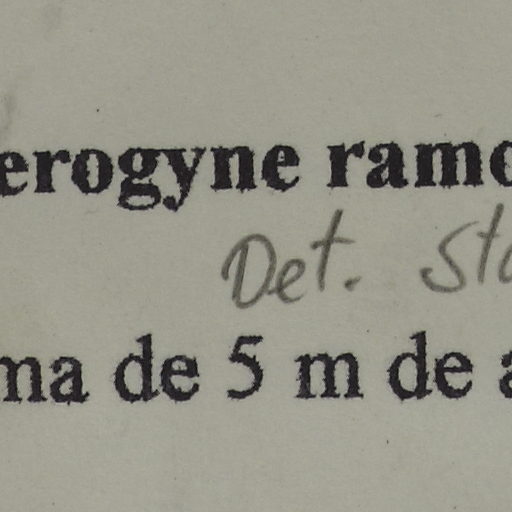 erogyne ramo
Det. Sta
ma de 5 m de a